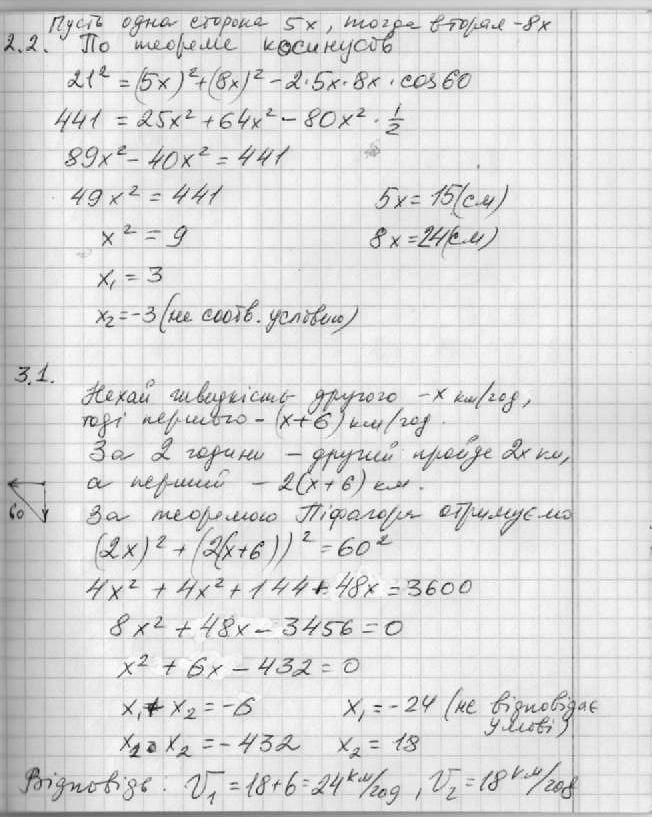 Пусть одна сторона 5x, тогда вторая - 8x
2.2. По теореме косинусов
21² = (5x)² + (8x)² - 2·5x·8x·cos60
441 = 25x² + 64x² - 80x² · 1/2
89x² - 40x² = 441
49x² = 441 5x = 15(см)
x² = 9 8x = 24(см)
x₁ = 3
x₂ = -3 (не соотв. условию)
3.1.
Нехай швидкість другого - x км/год,
тоді першого - (x+6) км/год.
За 2 години - другий пройде 2x км,
а перший - 2(x+6) км.
60
За теоремою Піфагора отримуємо
(2x)² + (2(x+6))² = 60²
4x² + 4x² + 144 + 48x = 3600
8x² + 48x - 3456 = 0
x² + 6x - 432 = 0
x₁ + x₂ = -6 x₁ = -24 (не відповідає умові)
x₁ · x₂ = -432 x₂ = 18
Відповідь: V₁ = 18+6 = 24 км/год, V₂ = 18 км/год